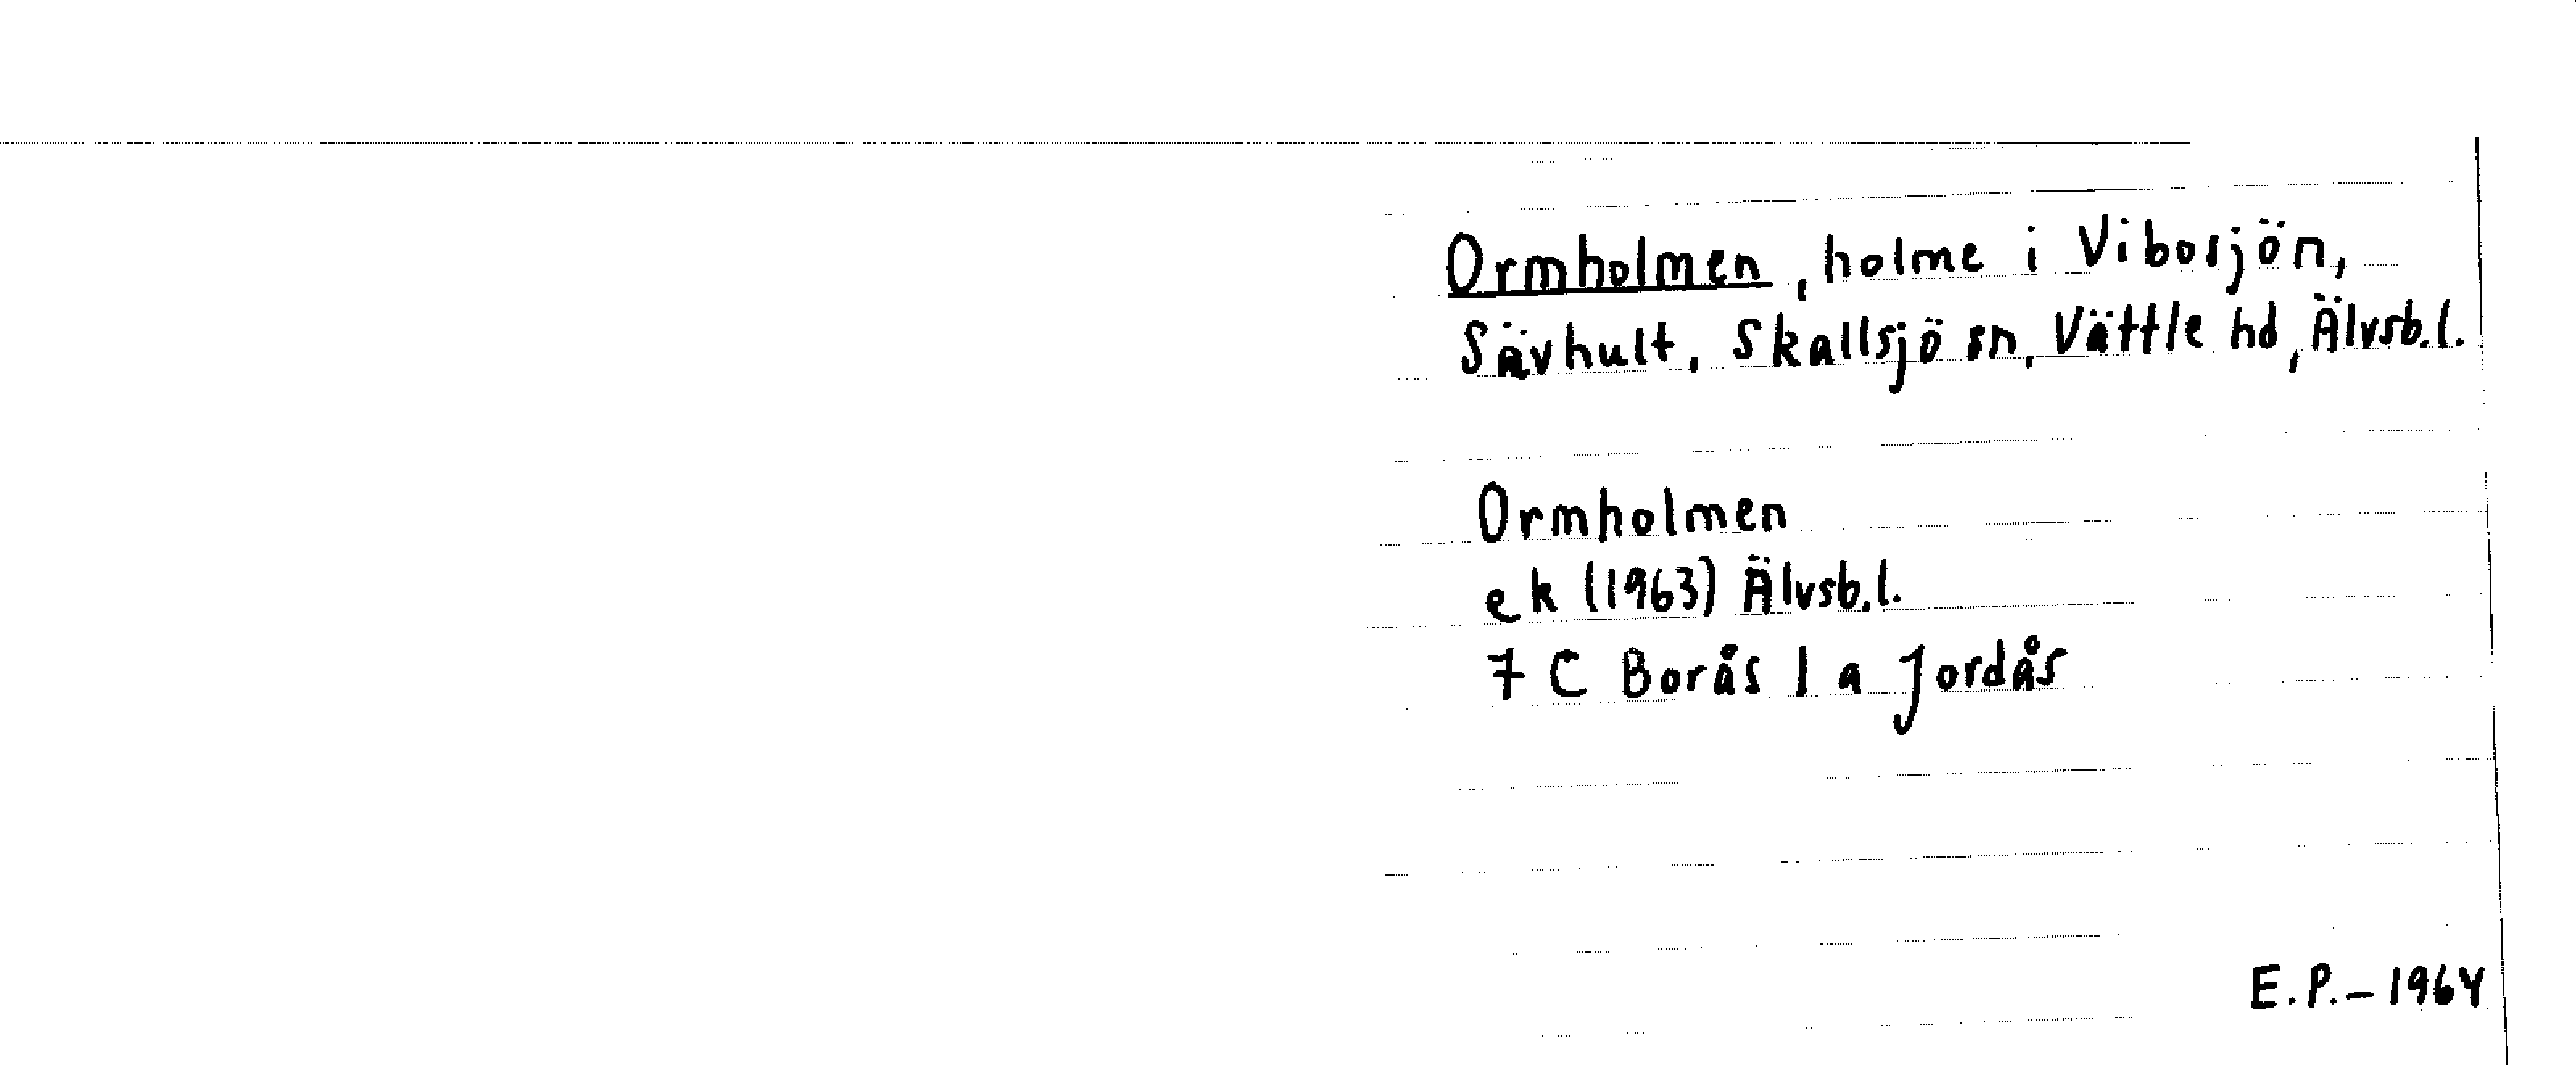 Ormholmen, holme i Vibosjön,
Sävhult, Skallsjö sn, Vättle hd, Älvsb.l.
Ormholmen
ek (1963) Älvsb.l.
7 C Borås 1 a Jordås
E.P. – 1964